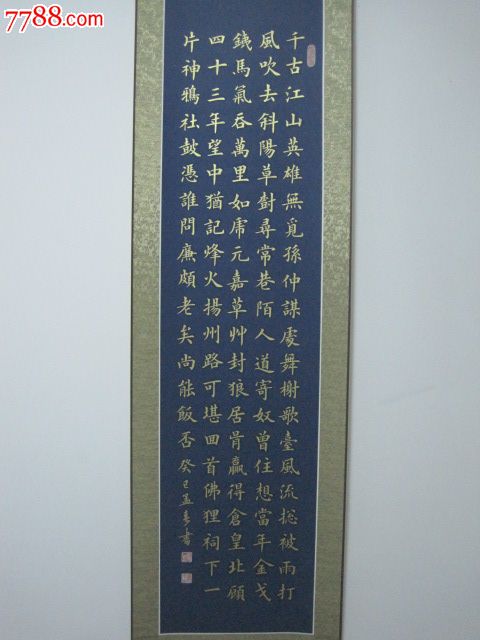 7788.com
千古江山英雄無覓孫仲謀處舞榭歌臺風流總被雨打
風吹去斜陽草樹尋常巷陌人道寄奴曾住想當年金戈
鐵馬氣吞萬里如虎元嘉草艸封狼居胥贏得倉皇北顧
四十三年望中猶記烽火揚州路可堪回首佛狸祠下一
片神鴉社鼓憑誰問廉頗老矣尚能飯否 癸巳孟春書